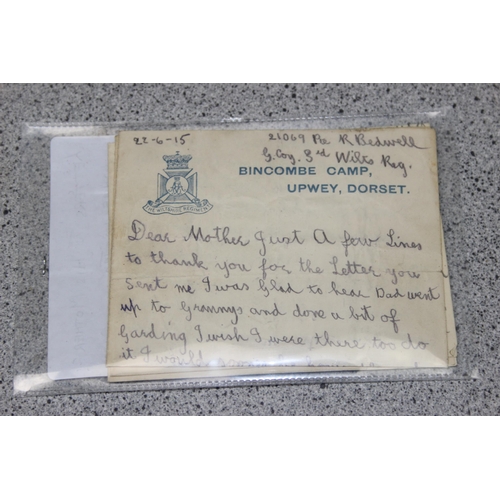 22-6-15
21069 Pte R Bedwell
G. Coy. 3rd Wilts Reg.
BINCOMBE CAMP,
UPWEY, DORSET.
THE WILTSHIRE REGIMENT
Dear Mother Just A few Lines
to thank you for the Letter you
sent me I was Glad to hear Dad went
up to Grannys and done a bit of
Garding I wish I were there too do
it I would